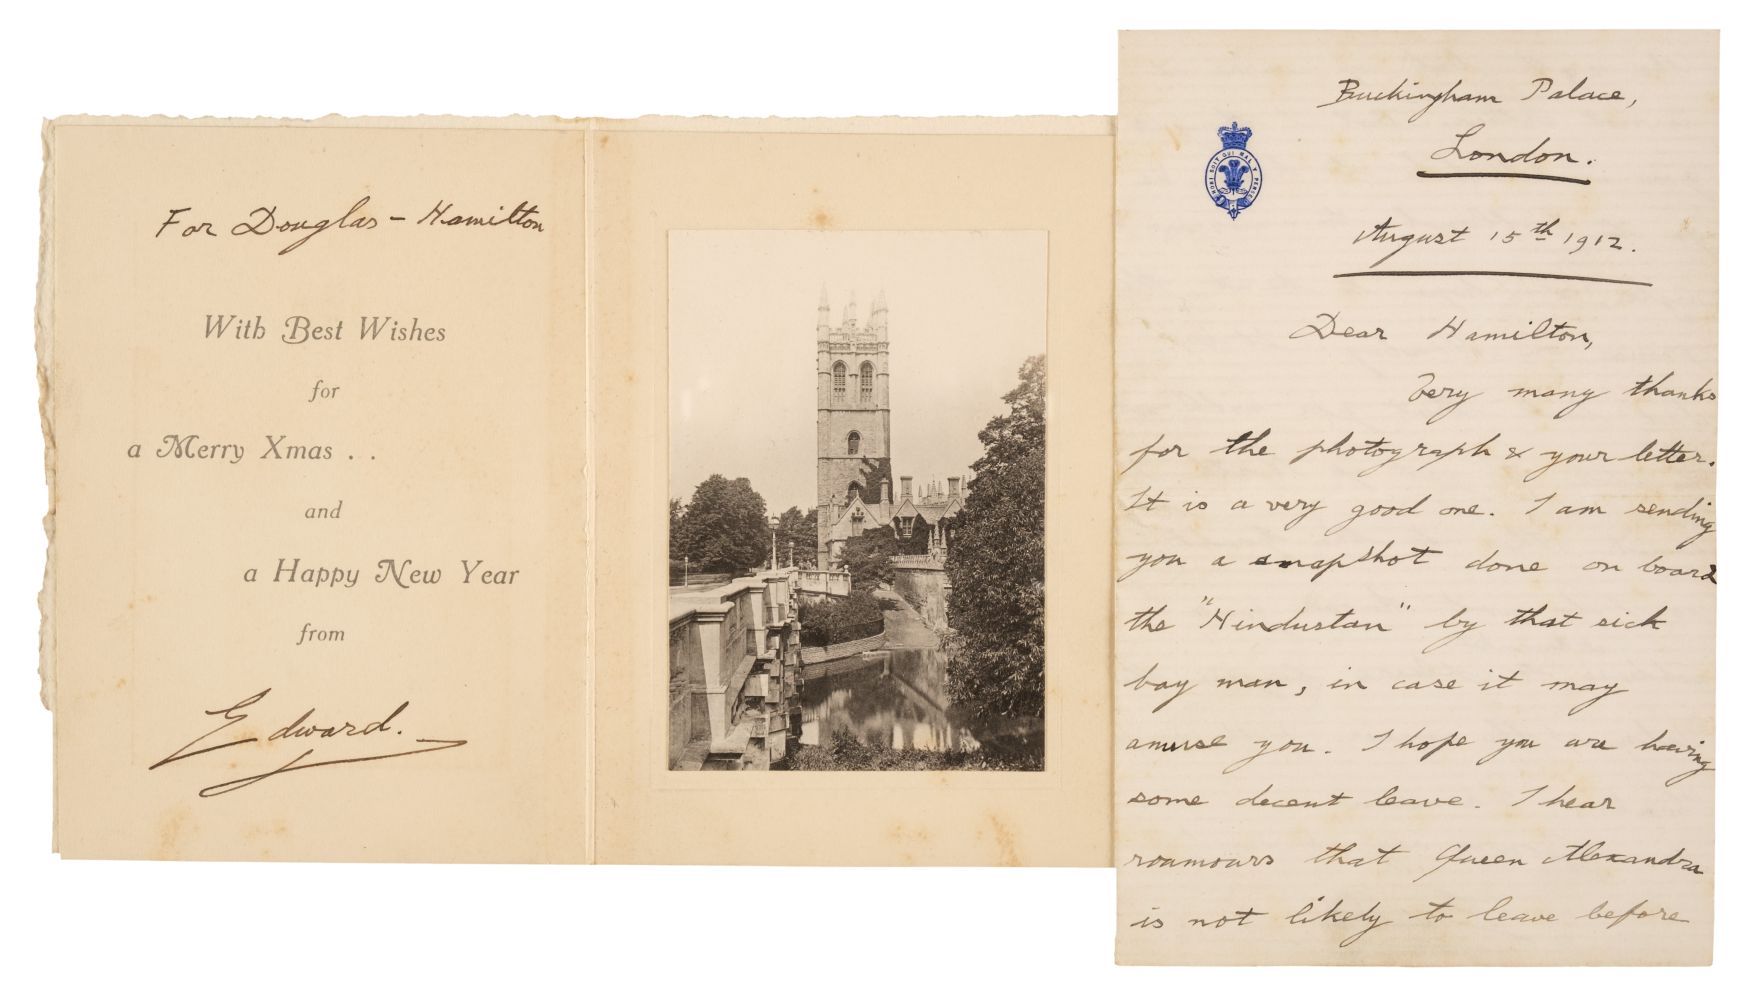 For Douglas-Hamilton
With Best Wishes
for
a Merry Xmas . .
and
a Happy New Year
from
Edward.
Buckingham Palace,
London.
HONI SOIT QUI MAL Y PENSE
August 15th 1912.
Dear Hamilton,
Very many thanks
for the photograph & your letter.
It is a very good one. I am sending
you a snapshot done on board
the "Hindustan" by that sick
bay man, in case it may
amuse you. I hope you are having
some decent leave. I hear
roumours that Queen Alexandra
is not likely to leave before